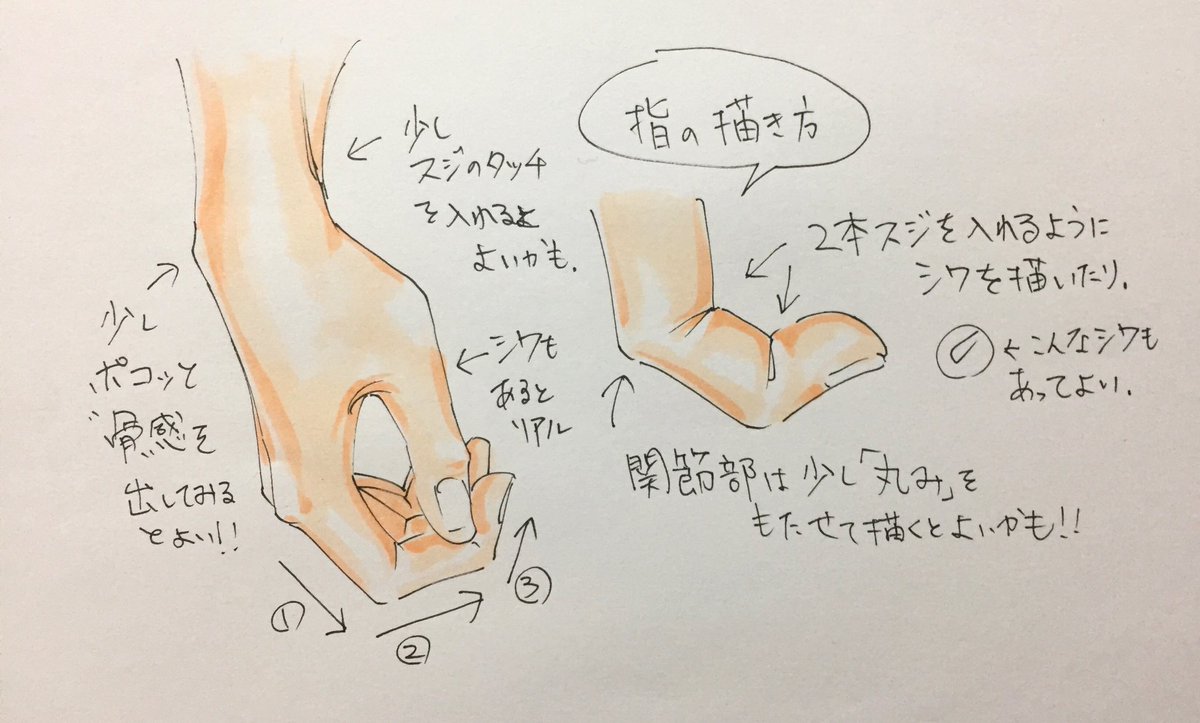 指の描き方
少し
スジのタッチ
を入れると
よいかも.
少し
ポコッと
骨感を
出してみる
とよい!!
←シワも
あると
リアル
①
②
③
2本スジを入れるように
シワを描いたり.
←こんなシワも
あってよい.
関節部は少し「丸み」を
もたせて描くとよいかも!!